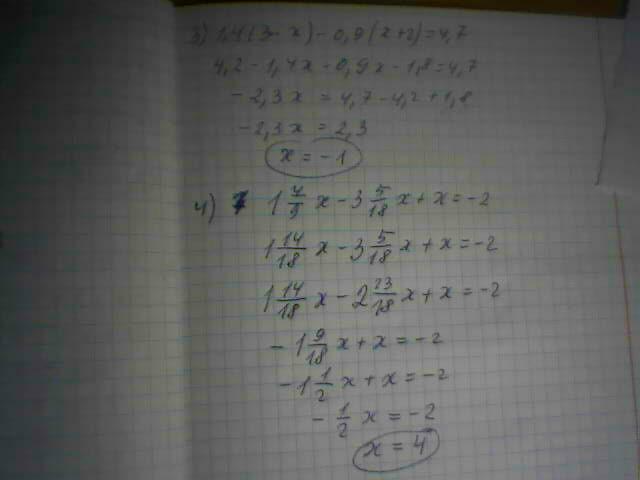 3) 1,4(3-x)-0,9(x+2)=4,7
4,2-1,4x-0,9x-1,8=4,7
-2,3x = 4,7-4,2+1,8
-2,3x = 2,3
x = -1
4) 1 7/9 x - 3 5/18 x + x = -2
1 14/18 x - 3 5/18 x + x = -2
1 14/18 x - 2 23/18 x + x = -2
-1 9/18 x + x = -2
-1 1/2 x + x = -2
-1/2 x = -2
x = 4